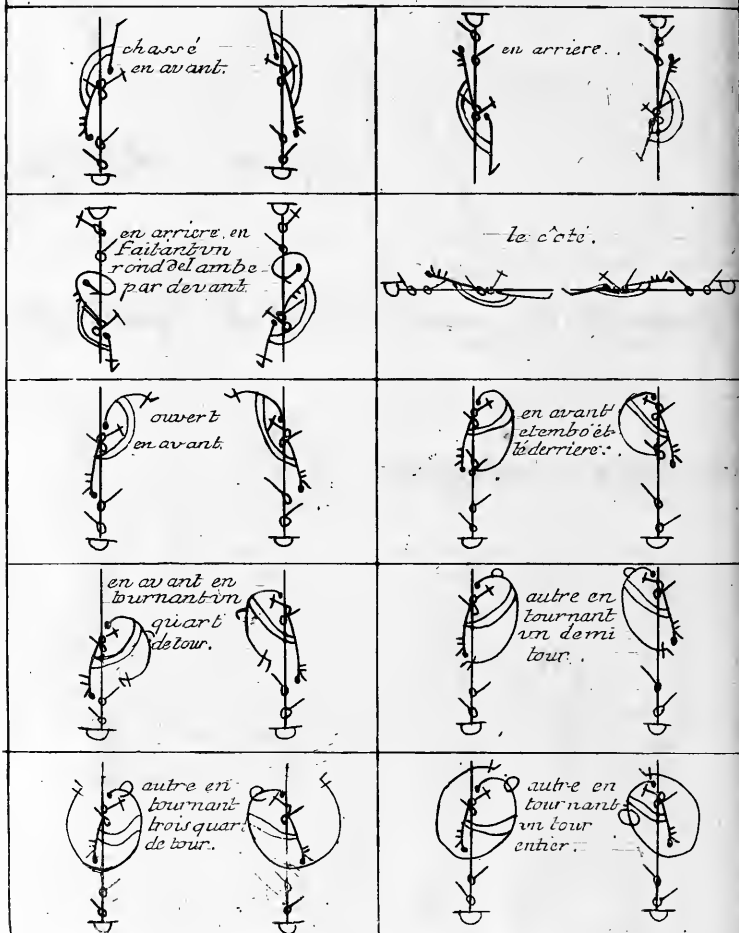 chassé
en avant.
en arriere.
en arriere en
Faitant vn
rond de Lambe
par devant
le côté.
ouvert
en avant.
en avant
et emboët-
té derriere.
en avant en
tournant vn
quart
de tour.
autre en
tournant
vn demi
tour.
autre en
tournant
trois quar
de tour.
autre en
tournant
vn tour
entier.